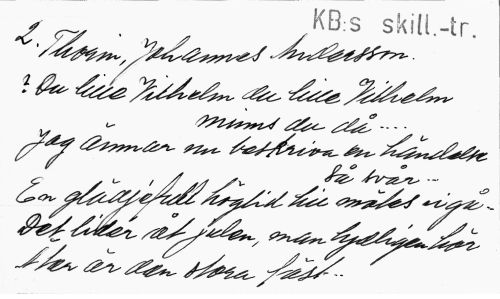 KB:s skill.-tr.
2. Thorin, Johannes Andersson.
? Du lille Vilhelm du lille Vilhelm
minns du då....
Jag ämnar nu beskriva en händelse
så svår..
En glädjefull högtid hie mötes vi gå-
Det lider åt julen, man tydligen hör
är den stora fäst..